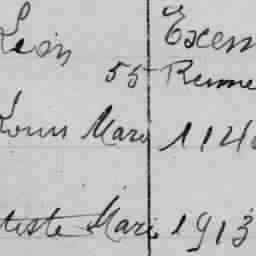 Léon Exem
55 Renne
Louis Mare 114
tiste Marie 1913